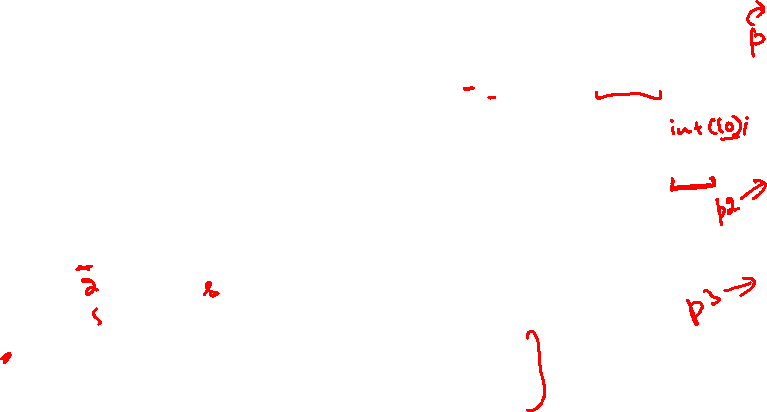 p
int(10);
p2
2
p3